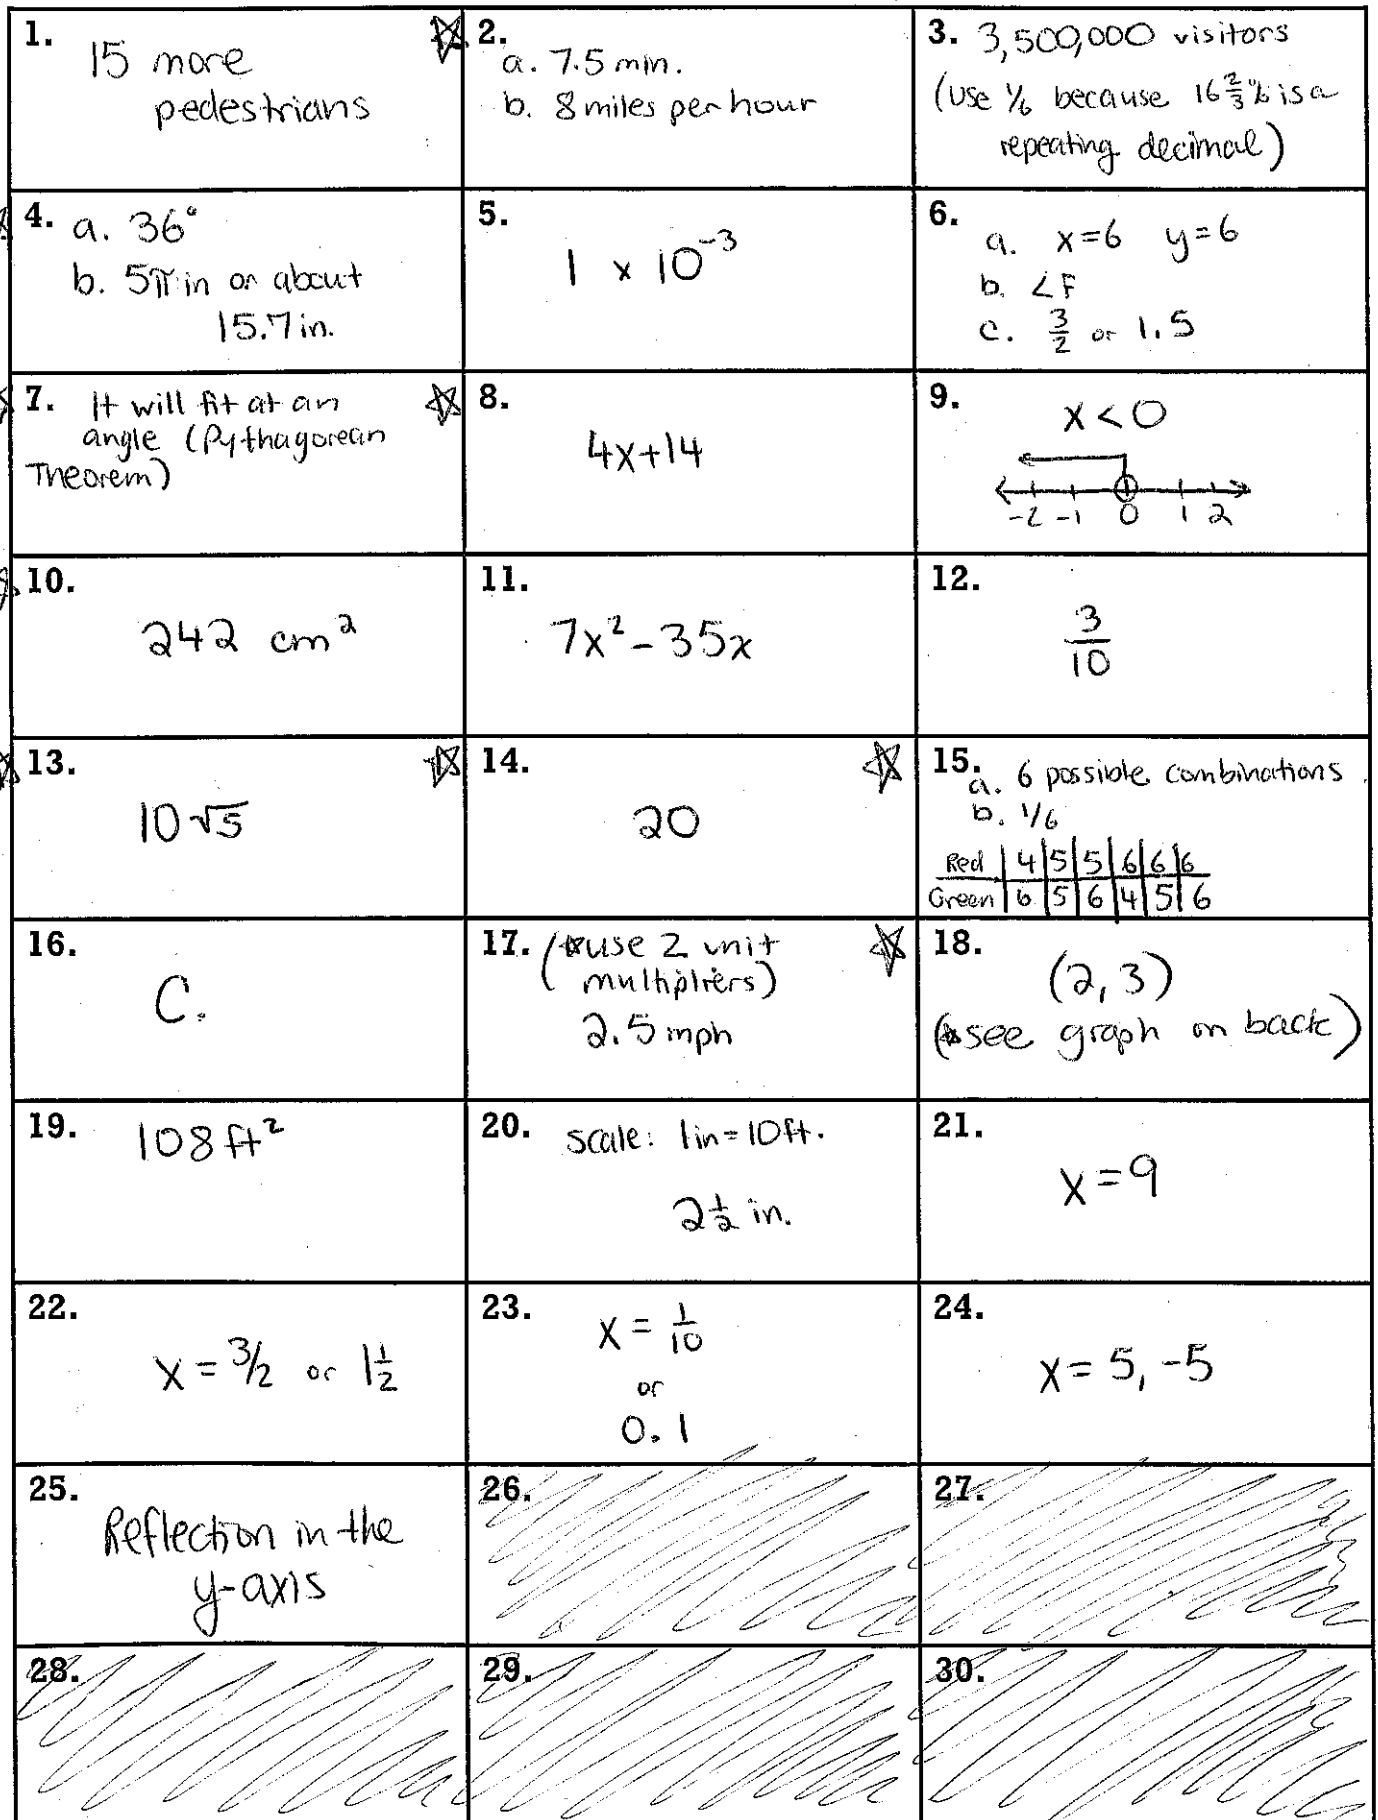 1. 15 more
pedestrians
2.
a. 7.5 min.
b. 8 miles per hour
3. 3,500,000 visitors
(use 1/6 because 16 2/3 % is a
repeating decimal)
4. a. 36°
b. 5π in or about
15.7 in.
5.
1 x 10^-3
6.
a. x=6 y=6
b. ∠F
c. 3/2 or 1.5
7. It will fit at an
angle (Pythagorean
Theorem)
8.
4x+14
9.
x<0
-2 -1 0 1 2
10.
242 cm²
11.
7x² - 35x
12.
3/10
13.
10√5
14.
20
15.
a. 6 possible combinations
b. 1/6
Red 4 5 5 6 6 6
Green 6 5 6 4 5 6
16.
C.
17. (*use 2 unit
multipliers)
2.5 mph
18.
(2,3)
(*see graph on back)
19. 108 ft²
20. scale: 1in=10ft.
2 1/2 in.
21.
x=9
22.
x = 3/2 or 1 1/2
23.
x = 1/10
or
0.1
24.
x= 5, -5
25.
Reflection in the
y-axis
26.
27.
28.
29.
30.